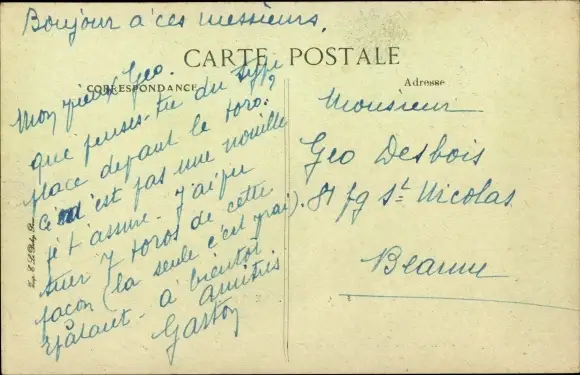 Bonjour à ces messieurs.
CARTE POSTALE
CORRESPONDANCE
Adresse
Mon vieux Geo.
que penses-tu du type
place devant le toro?
Ce n'est pas une nouille
je t'assure - J'ai pu
tuer 7 toros de cette
façon (la seule c'est vrai).
épatant - à bientôt
Amitiés
Gaston
Monsieur
Geo Desbois
fg St Nicolas
Beaune
Imp.